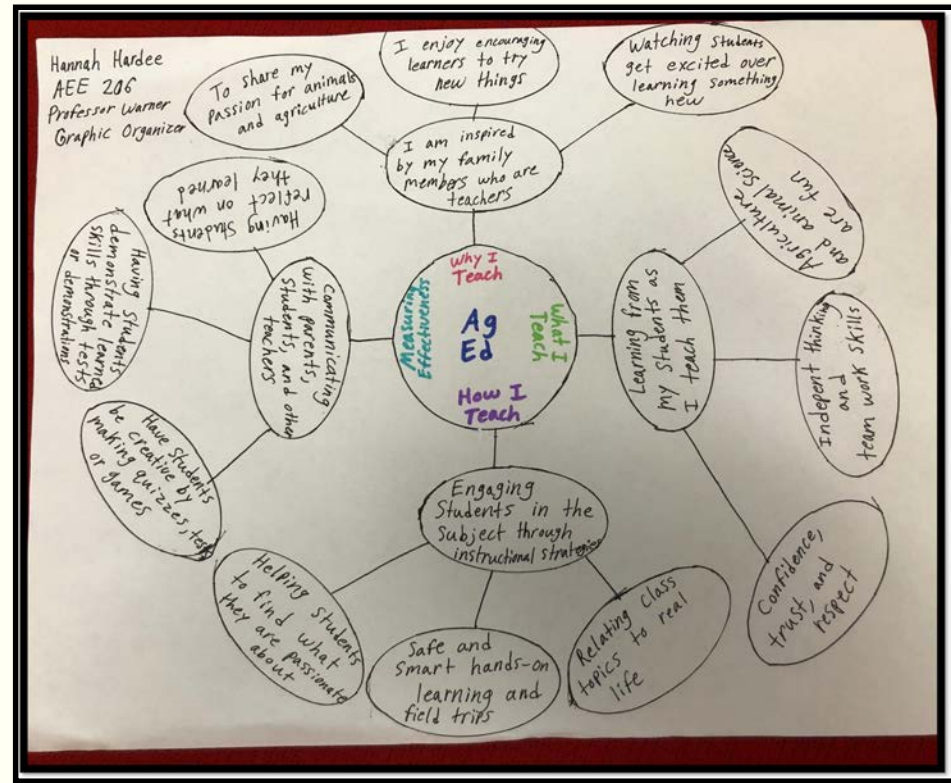 Hannah Hardee
AEE 206
Professor Warner
Graphic Organizer
To share my
passion for animals
and agriculture
I enjoy encouraging
learners to try
new things
Watching students
get excited over
learning something
new
I am inspired
by my family
members who are
teachers
Why I
Teach
What I
Teach
How I
Teach
Measuring
Effectiveness
Ag
Ed
Learning from
my Students as
I teach them
Agriculture
and animal Science
are fun
Indepent thinking
and
team work skills
Confidence,
trust, and
respect
Engaging
Students in the
Subject through
instructional strategies
Relating class
topics to real
life
Safe and
Smart hands-on
learning and
field trips
Helping students
to find what
they are passionate
about
Communicating
with parents,
Students, and other
teachers
Have Students
be creative by
making quizzes, tests
or games
Having Students
demonstrate learned
skills through tests
or demonstrations
Having Students
reflect on what
they learned